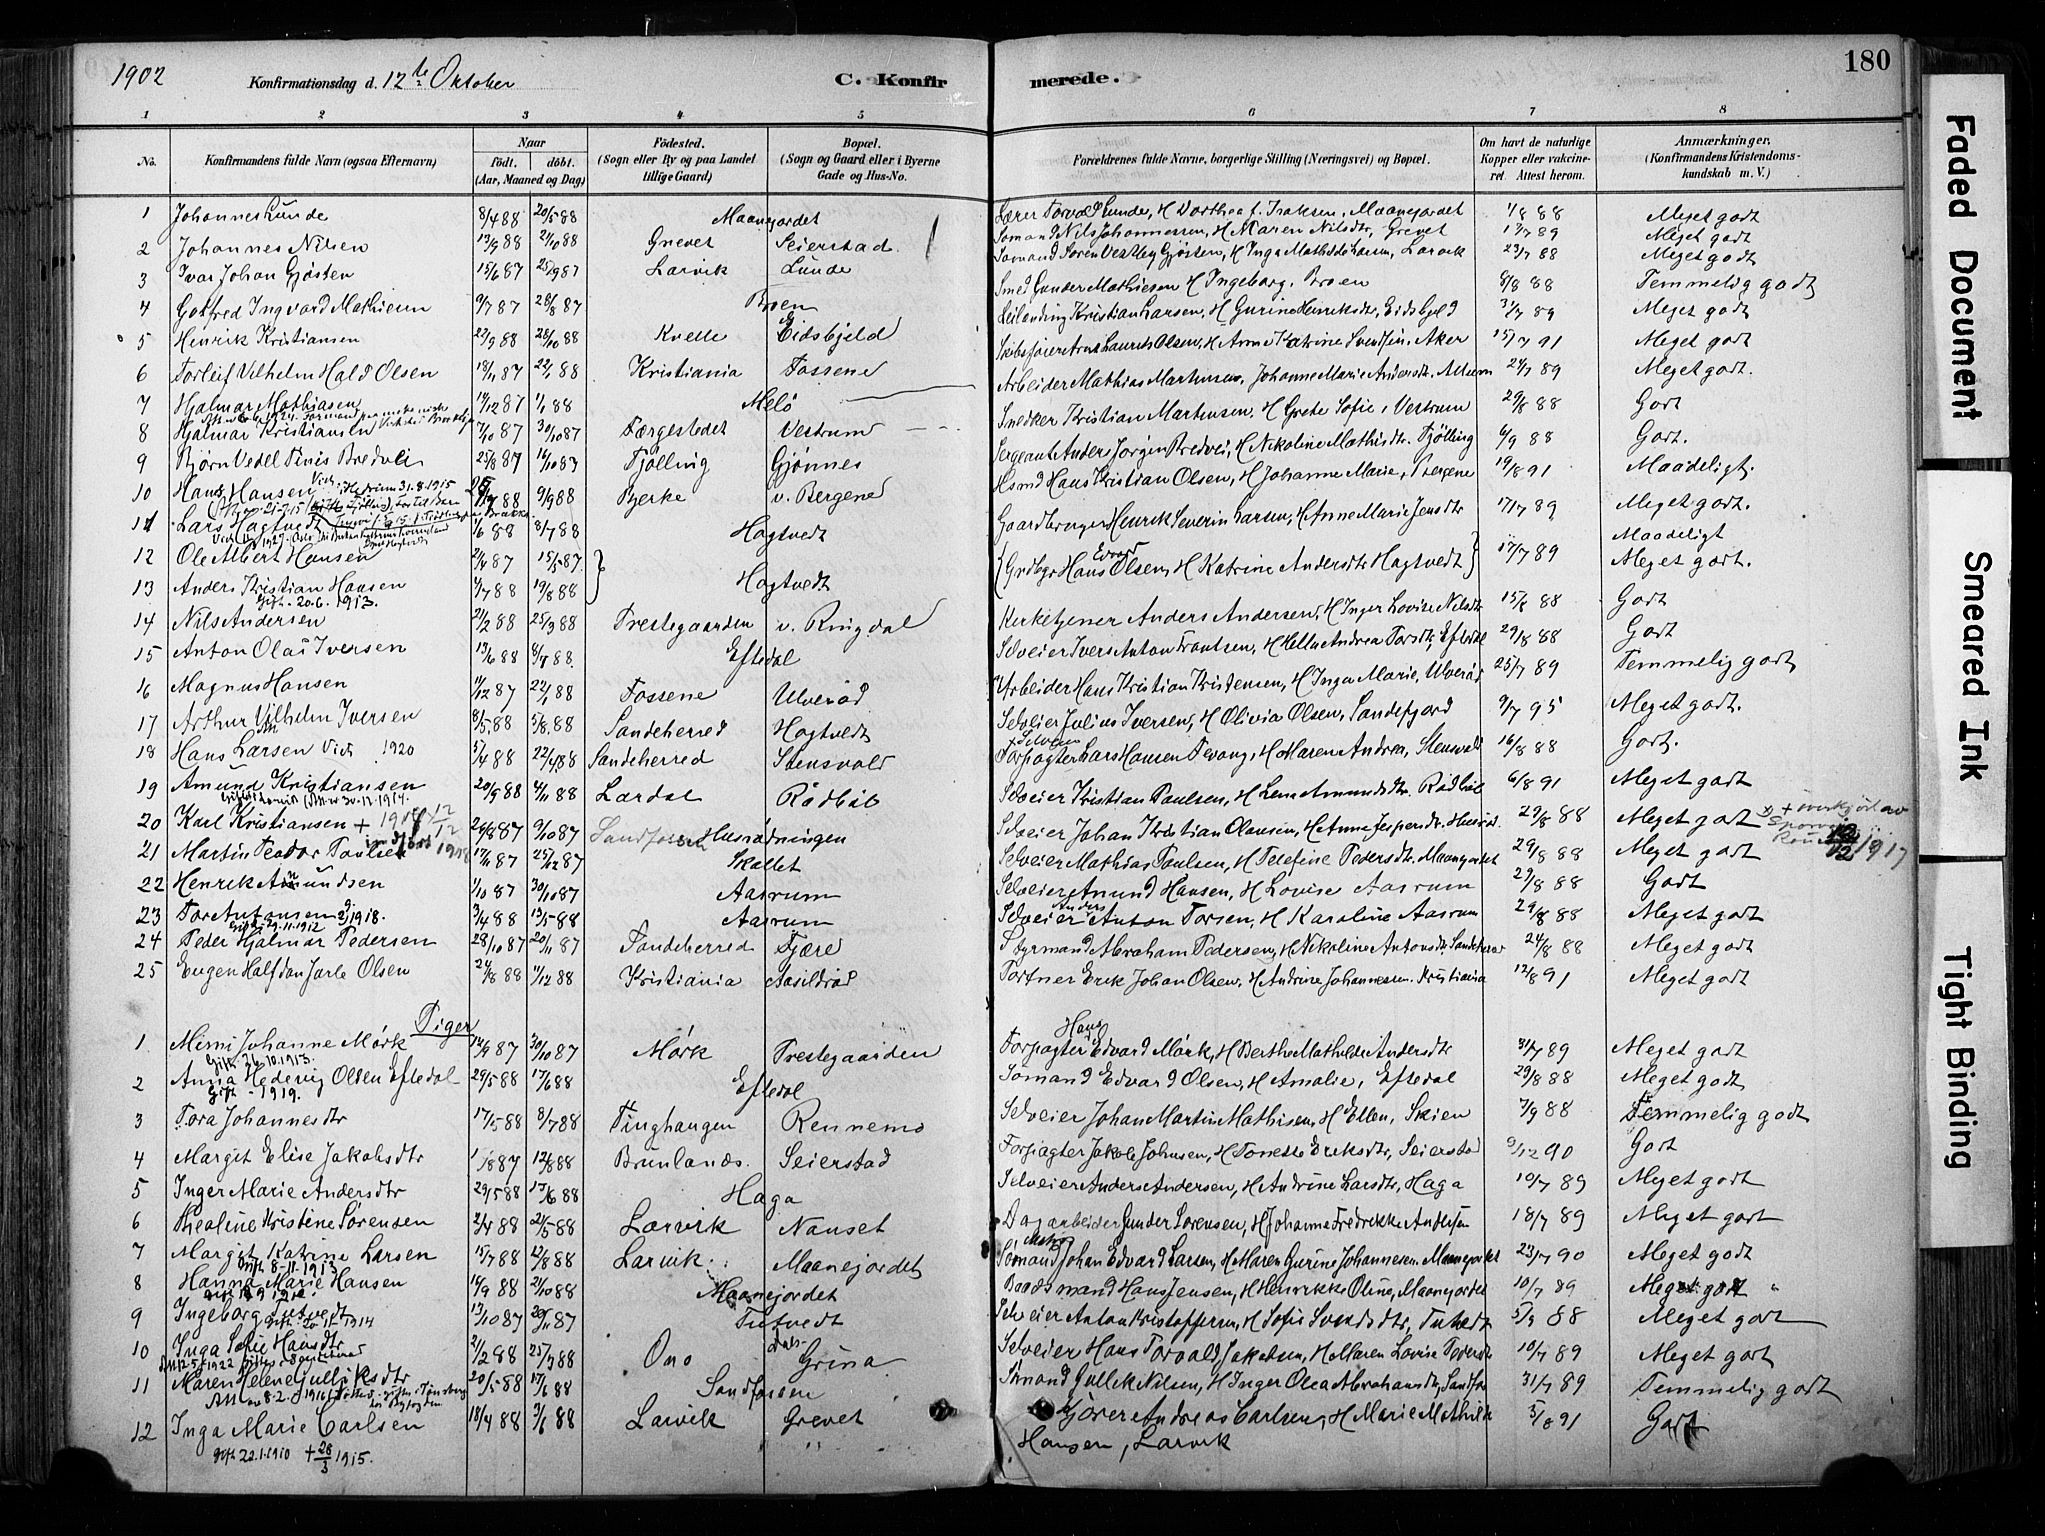 1902 Konfirmationsdag d. 12te Oktober C. Konfirmerede. 180
1 2 3 4 5 6 7 8
No. Konfirmandens fulde Navn (ogsaa Efternavn) Naar født. døbt. (Aar, Maaned og Dag) Fødested. (Sogn eller By og paa Landet tillige Gaard) Bopæl. (Sogn og Gaard eller i Byerne Gade og Hus-No. Forældrenes fulde Navne, borgerlige Stilling (Næringsvei) og Bopæl. Om havt de naturlige Kopper eller vakcineret. Attest herom. Anmærkninger. (Konfirmandens Kristendomskundskab m. V.)
1 Johannes Lunde 8/4 88 20/5 88 Maanejordet Meget godt
2 Johannes Nilsen 13/9 88 21/10 88 Grevet Seierstad Sømand Nils Johannessen, H Maren Nilsdtr, Grevet Meget godt
3 Ivar Johan Gjøsten 15/6 87 25/9 87 Larvik Lunde Larvik 23/7 88 Meget godt
4 Gotfred Ingvard Mathisen 9/7 87 28/8 87 Broen Smed Gunder Mathiesen H Ingeborg, Broen 8/8 88 Temmelig godt
5 Henrik Kristiansen 22/9 88 28/10 88 Kvelle Eidsbjeld Leilending Kristian Larsen, H Gurine Henriksdtr, Eidsbjeld 31/7 89 Meget godt
6 Torleif Vilhelm Hald Olsen 18/11 87 22/1 88 Kristiania Fossene Aker 15/7 91 Meget godt
7 Hjalmar Mathiasen 14/12 87 1/1 88 Melø Arbeider Mathias Martinsen, Johanne Marie Andersdtr. 24/7 89 Meget godt.
8 Hjalmar Kristiansen 7/10 87 30/10 87 Færgestedet Vestrum Snedker Kristian Martinsen, H Grete Sofie, Vestrum 29/8 88 Godt
9 Bjørn Vedel Tenis Bredvei 25/8 87 16/10 87 Tjølling Gjønnes Sergeant Anders Jørgen Bredvei, H Nikoline Mathisdtr. Tjølling 6/9 88 Godt.
10 Hans Hansen 9/9 88 Bjerke v. Bergene Hsmd Hans Kristian Olsen, H Johanne Marie, Bergene 19/8 91 Maadeligt.
11 Lars Hagtvedt 1/6 88 8/7 88 Hagtvedt Gaardbruger Henrik Severin Larsen, H Anne Marie Jensdtr 17/7 89 Meget godt.
12 Ole Albert Hansen 2/4 87 15/5 87 Maadeligt
13 Anders Kristian Hansen 7/7 88 19/8 88 Hagtvedt Grdbgr Hans Edvard Olsen, H Katrine Andersdtr Hagtvedt 17/7 89 Meget godt.
Gift. 20.6.1913.
14 Nils Andersen 21/2 88 25/3 88 Prestegaarden v. Ringdal Kirketjener Anders Andersen, H Inger Lovise Nilsdtr 15/8 88 Godt
15 Anton Olai Iversen 13/6 88 8/7 88. Eftedal Selveier Ivers Anton Frantsen, H Helle Andrea Torsdtr, Eftedal 29/8 88 Godt
16 Magnus Hansen 11/12 87 22/1 88 Fossene Ulverød Arbeider Hans Kristian Kristensen, H Inga Marie, Ulverød 25/7 89 Temmelig godt
17 Arthur Vilhelm Iversen 8/5 88 5/8 88 Sandeherred Hagtvedt Selveier Julius Iversen, H Olivia Olsen, Sandefjord 9/7 95 Meget godt.
18 Hans Larsen Vids 1920 5/4 88 22/4 88 Sandeherred Stensvold Forpagter Lars Hansen Tevang, H Maren Andrea, Stensvold 16/8 88 Godt.
19 Amund Kristiansen 20/9 88 4/11 88 Lardal Rødbøl Selveier Kristian Paulsen, H Lene Amundsdtr. Rødbøl 6/8 91 Meget godt
20 Karl Kristiansen 24/8 87 9/10 87 Sandfossen Husnødningen Selveier Johan Kristian Olausen, H Anne Jespersdtr. 29/8 88 Meget godt
21 Martin Teodor Paulsen 17/11 87 25/12 87 Skallet Selveier Mathias Paulsen, H Telefine Pedersdtr, Maanejordet 29/8 88 Meget godt 1917
22 Henrik Amundsen 1/10 87 30/10 87 Aasrum Selveier Amund Hansen, H Lovise Aasrum 29/8 88 Godt
23 Tor Antonsen 3/4 88 13/5 88 Aasrum Selveier Anders Anton Torsen, H Karoline Aasrum 29/8 88 Meget godt
Gift 29.11.1912
24 Peder Hjalmar Pedersen 28/10 87 20/11 87 Sandeherred Fjære Styrmand Abraham Pedersen, H Nikoline Antonsdtr, Sandeherred 24/8 88 Meget godt
25 Eugen Halfdan Jarle Olsen 24/8 88 1/12 88 Kristiania Aasildrød Portner Erik Johan Olsen, H Andrine Johannesen. Kristiania 12/8 91 Meget godt
Piger
1 Mimi Johanne Mørk 14/9 87 30/10 87 Mørk Prestegaarden Forpagter Hans Edvard Mørk, H Berthe Mathilde Andersdtr 31/7 89 Meget godt
Gift. 26.10.1913.
2 Anna Hedevig Olsen Eftedal 29/5 88 17/6 88 Eftedal Sømand Edvard Olsen, H Amalie, Eftedal 29/8 88 Meget godt
Gift - 1919.
3 Tora Johannesdtr 17/5 88 8/7 88 Tinghaugen Rennemo Selveier Johan Martin Mathisen, H Ellen, Skien 7/9 88 Temmelig godt
4 Margit Elise Jakobsdtr 12/8 88 Brunlanæs. Seierstad Forpagter Jakob Johnsen, H Tonette Eriksdtr, Seierstad 9/12 90 Godt
5 Inger Marie Andersdtr 29/5 88 17/6 88 Haga Selveier Anders Andersen, H Andrine Larsdtr, Haga 10/7 89 Meget godt
6 Thealine Kristine Sørensen 2/4 88 21/5 88 Larvik Nanset Dagarbeider Gunder Sørensen, H Johanne Fredrikke Andersen 18/7 89 Meget godt
7 Margit Katrine Larsen 15/7 88 12/8 88 Larvik Maanejordet Sømand Johan Edvard Larsen, H Maren Gurine Johannesen Maanejordet 23/7 90 Meget godt
Gift 8-11-1913
8 Hanna Marie Hansen 14/9 88 21/10 88 Maanejordet Baadsmand Hans Jensen, H Henrikke Oline, Maanejordet 10/7 89 Meget godt "
9 Ingeborg Tutvedt 13/10 87 20/11 87 Tutvedt Selveier Anton Kristoffersen, H Sofie Svendsdtr, Tutvedt 5/9 88 Meget godt
10 Inga Sofie Hansdtr 21/2 88 25/3 88 Ono Grina Selveier Hans Torvald Jakobsen, H Maren Lovise Pedersdtr 10/7 89 Meget godt
11 Maren Helene Gulliksdtr 20/5 88 17/6 88 Sandfossen Sømand Gullik Nilsen, H Inger Olea Abrahamsdtr, Sandfos 31/7 89 Temmelig godt
12 Inga Marie Carlsen 18/4 88 3/6 88 Larvik Grevet Kjører Andreas Carlsen, H Marie Mathilde Hansen, Larvik 5/8 91 Godt
gift 22.1.1910 + 28/3 1915.
Faded Document
Smeared Ink
Tight Binding